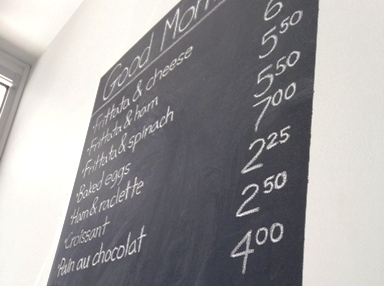 Good Morn
Frittata & cheese 6
Frittata & ham 5.50
Frittata & spinach 5.50
Baked eggs 7.00
Ham & raclette 2.25
Croissant 2.50
Pain au chocolat 4.00